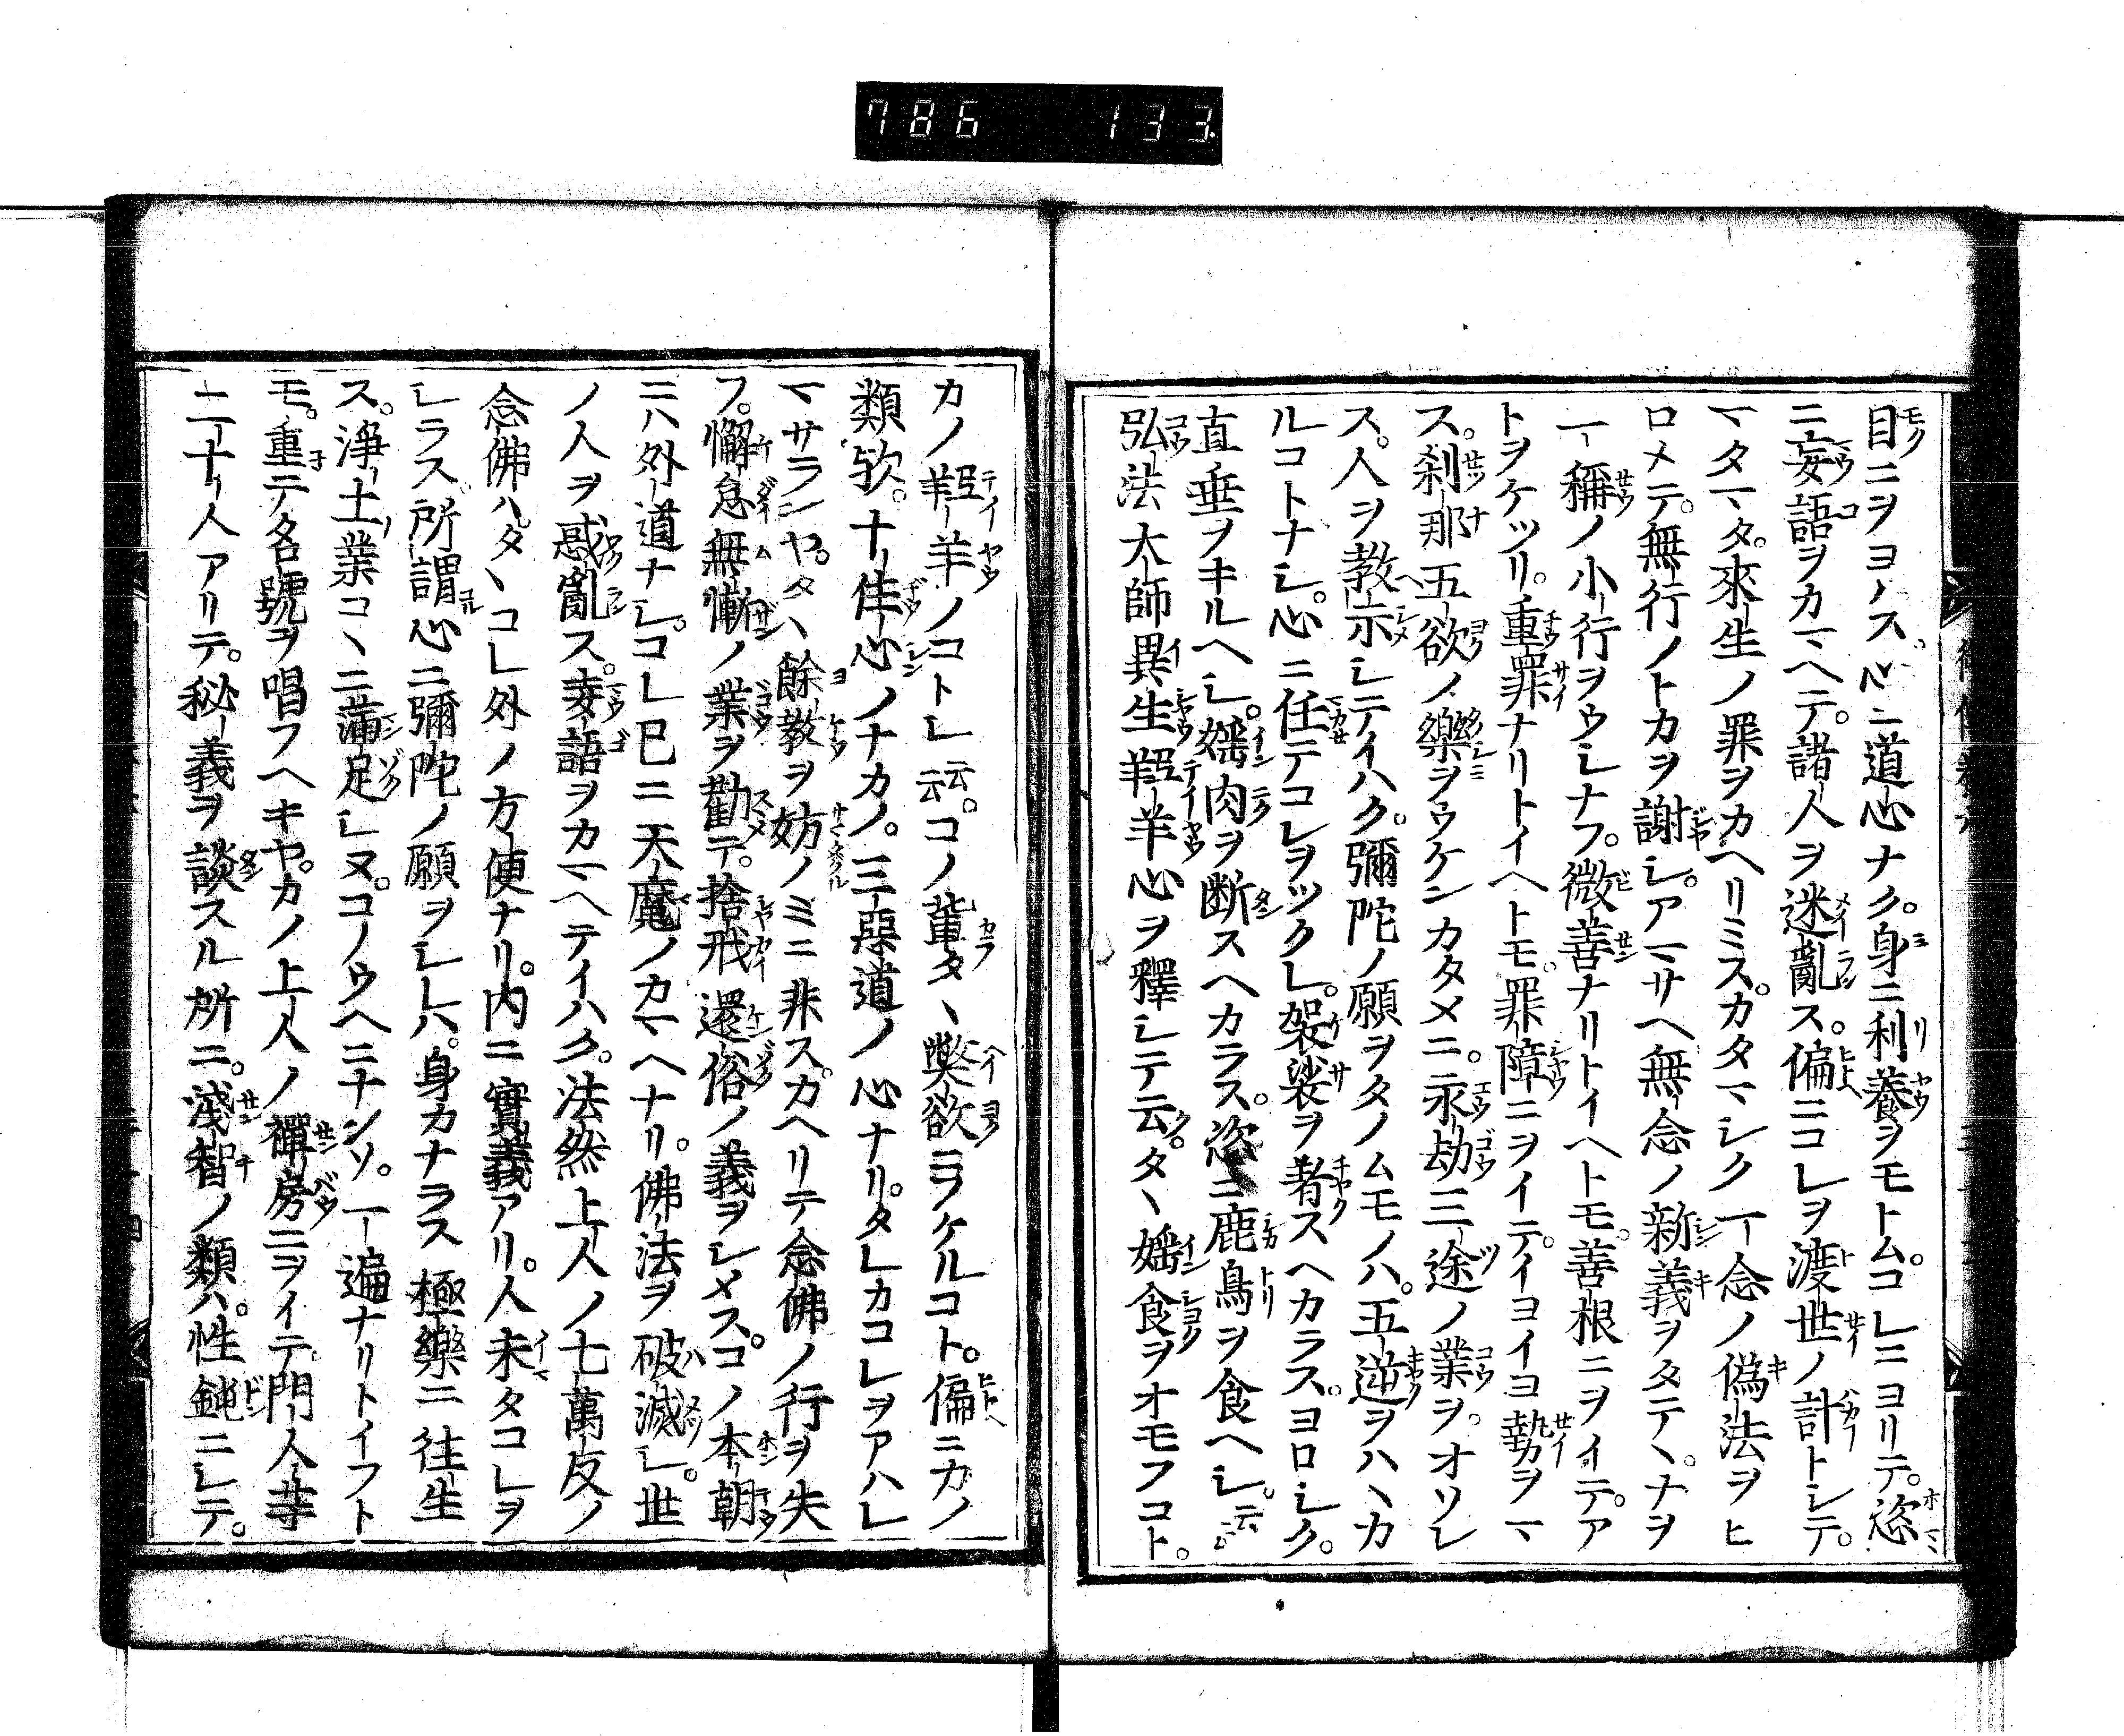 786 133
目ニヲヨハス。心ニ道心ナク。身ニ利養ヲモトム。コレニヨリテ。恣
ニ妄語ヲカマヘテ。諸人ヲ迷亂ス。偏ニコレヲ渡世ノ計トシテ。
マタマタ來生ノ罪ヲカヘリミス。カタマシク一念ノ僞法ヲヒ
ロメテ。無行ノトカヲ謝シ。アマサヘ無念ノ新義ヲタテヽ。ナヲ
一稱ノ小行ヲウシナフ。微善ナリトイヘトモ。善根ニヲイテア
トヲケツリ。重罪ナリトイヘトモ。罪障ニヲイテイヨイヨ勢ヲマ
ス。刹那五欲ノ樂ヲウケンカタメニ。永劫三途ノ業ヲオソレ
ス。人ヲ教示シテイハク。彌陀ノ願ヲタノムモノハ。五逆ヲハヽカ
ルコトナシ。心ニ任テコレヲツクレ。袈裟ヲ著スヘカラス。ヨロシク。
直垂ヲキルヘシ。婬肉ヲ断スヘカラス。恣ニ鹿鳥ヲ食ヘシ。云云。
弘法大師異生羝羊心ヲ釋シテ云ク。タヽ婬食ヲオモフコト。
カノ羝羊ノコトシ云云。コノ輩タヽ弊欲ニフケルコト。偏ニカノ
類欤。十住心ノナカノ。三惡道ノ心ナリ。タレカコレヲアハレ
マサランヤ。タヽ餘教ヲ妨ノミニ非ス。カヘリテ念佛ノ行ヲ失
フ。懈怠無慚ノ業ヲ勸テ。捨戒還俗ノ義ヲシメス。コノ本朝
ニハ外道ナシ。コレ已ニ天魔ノカマヘナリ。佛法ヲ破滅シ。世
ノ人ヲ惑亂ス。妄語ヲカマヘテイハク。法然上人ノ七萬反ノ
念佛ハ。タヽコレ外ノ方便ナリ。内ニ實義アリ。人未タコレヲ
シラス。所謂心ニ彌陀ノ願ヲシレハ。身カナラス極樂ニ往生
ス。淨土ノ業コヽニ滿足シヌ。コノウヘニナンソ。一遍ナリトイフト
モ。重テ名號ヲ唱フヘキヤ。カノ上人ノ禪房ニヲイテ。門人等
二十人アリテ。秘義ヲ談スル所ニ。淺智ノ類ハ。性鈍ニシテ。